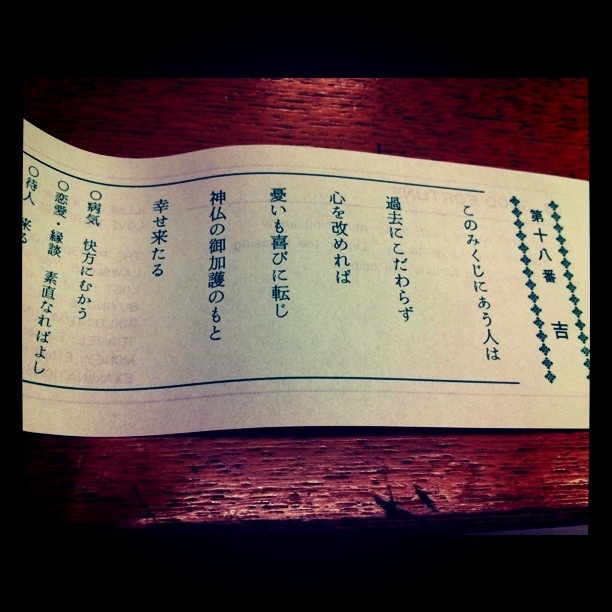 第十八番 吉
このみくじにあう人は
過去にこだわらず
心を改めれば
憂いも喜びに転じ
神仏の御加護のもと
幸せ来たる
○病気 快方にむかう
○恋愛・縁談 素直なればよし
○待人 来る